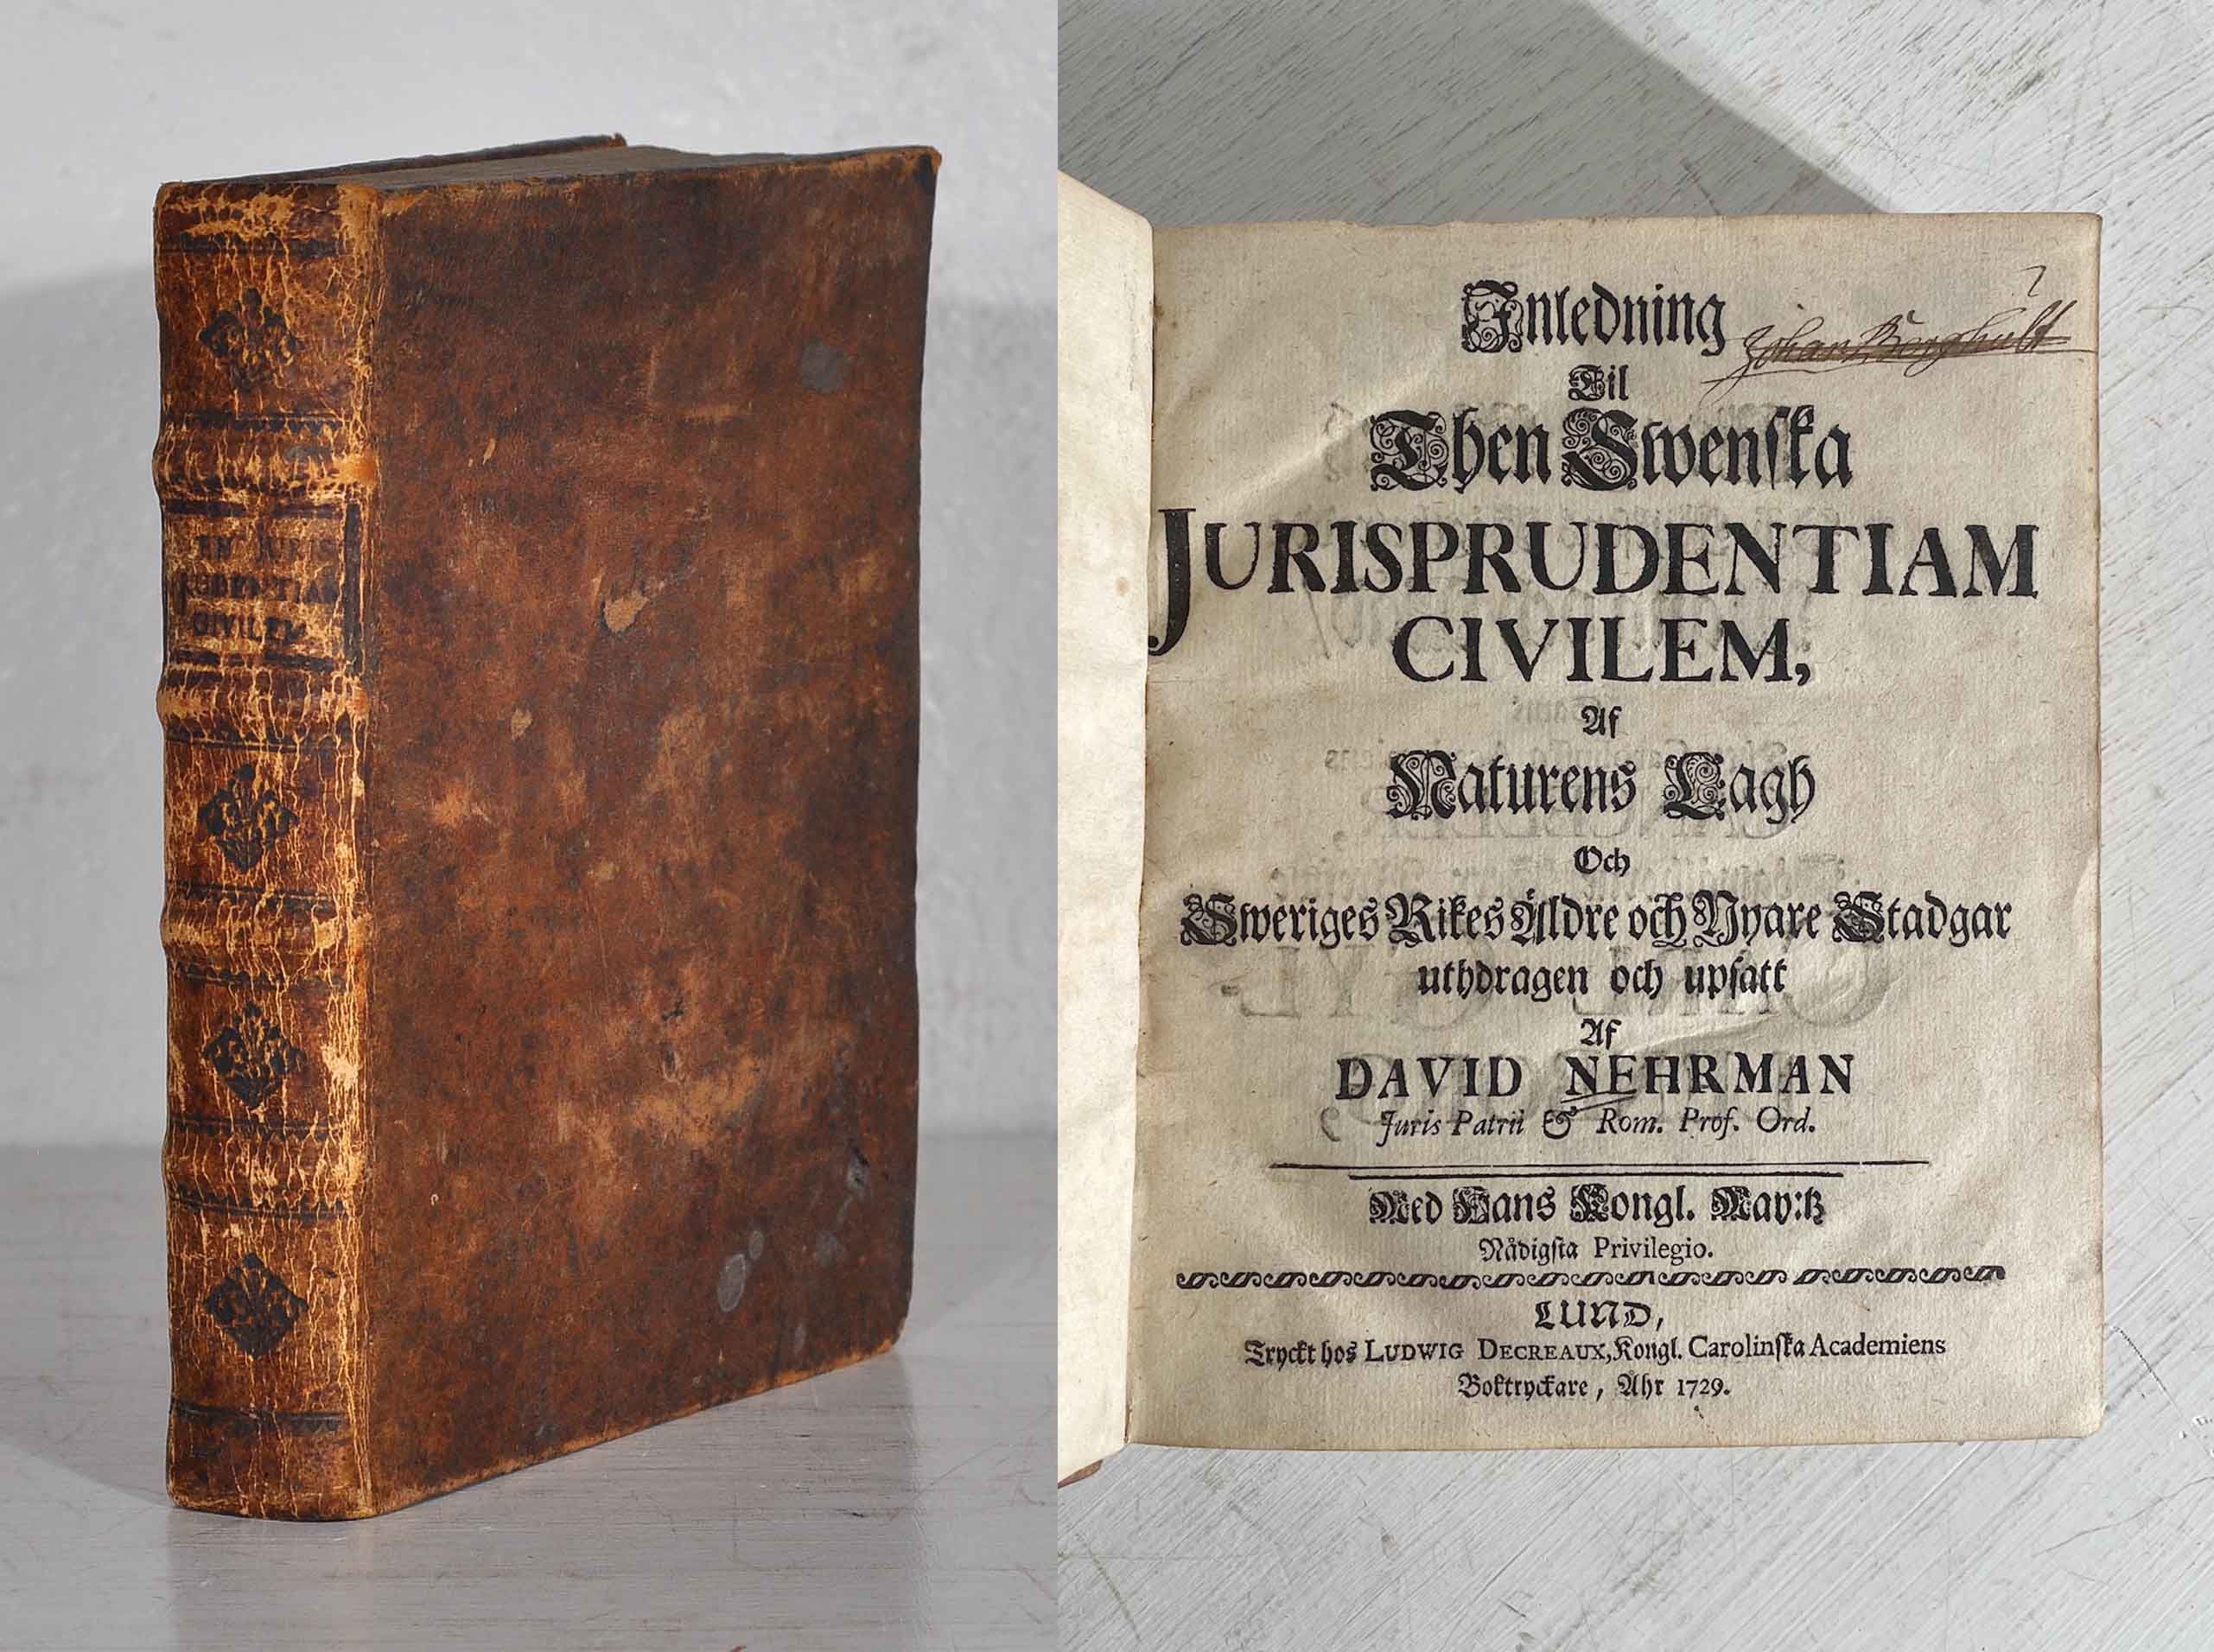 EN JURIS
PRUDENTIAM
CIVILEM
Inledning
Johan Borghult
Til
Then Swenſka
JURISPRUDENTIAM
CIVILEM,
Af
Naturens Lagh
Och
Sweriges Rikes Äldre och Nyare Stadgar
uthdragen och upſatt
Af
DAVID NEHRMAN
Juris Patrii & Rom. Prof. Ord.
Med Hans Kongl. May:tz
Nådigſta Privilegio.
LUND,
Tryckt hos LUDWIG DECREAUX, Kongl. Carolinſka Academiens
Boktryckare, Ahr 1729.